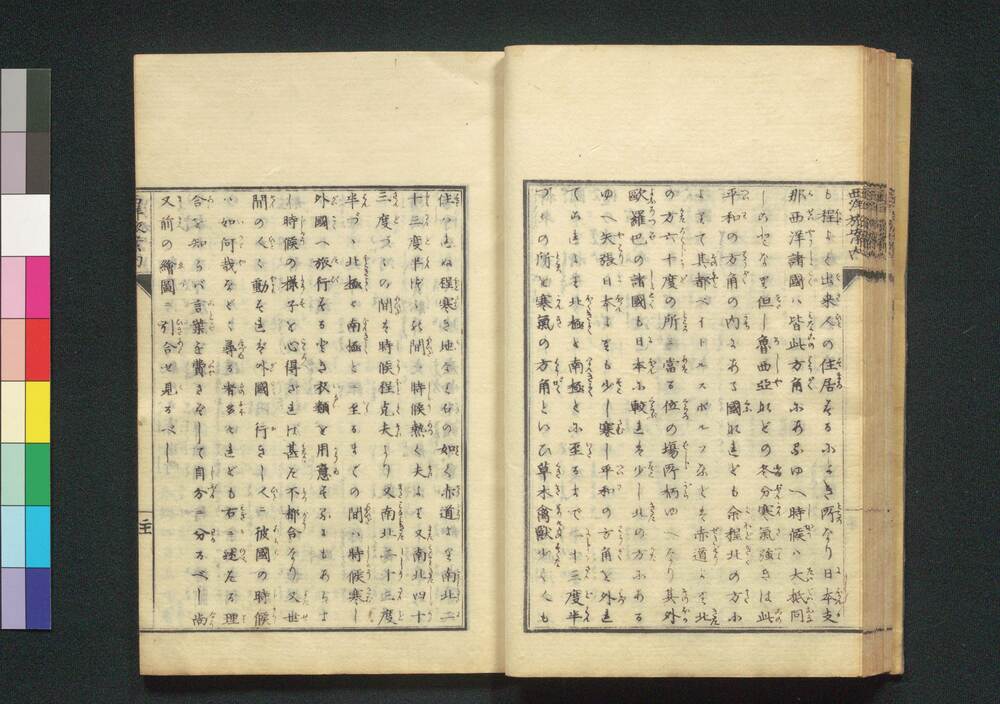 も程よく出来人の住居するによき所なり日本支
那西洋諸國ハ皆此方角にあるゆへ時候ハ大抵同
しことなり但し魯西亜などの冬分寒氣強きは此
平和の方角の内にある國なれども余程北の方に
よりて其都ペイトルスボルフなどは赤道より北
の方六十度の所に當る位の場所柄ゆへなり其外
歐羅巴の諸國も日本に較れは少し北の方にある
ゆへ矢張日本よりも少し寒し平和の方角を外れ
てはそれより北極と南極とに至るまで二十三度半
づゝの所を寒氣の方角といひ草木禽獸少くも
住つかぬ程寒き地なり右の如く赤道より南北二
十三度半づゝの間ハ時候熱く夫より又南北四十
三度づゝの間は時候程克夫より又南北二十三度
半づゝ北極と南極とに至るまでの間ハ時候寒し
外國へ旅行するとき衣類を用意するにもあらまし
時候の様子を心得ざれは甚だ不都合なり又世
間の人々動もすれは外國に行きし人に彼國の時候
ハ如何哉などゝ尋る者あれども右に述たる理
合を知らバ言葉を費さずして自分に分るべし尚
又前の繪圖ニ引合せ見るべし
二十